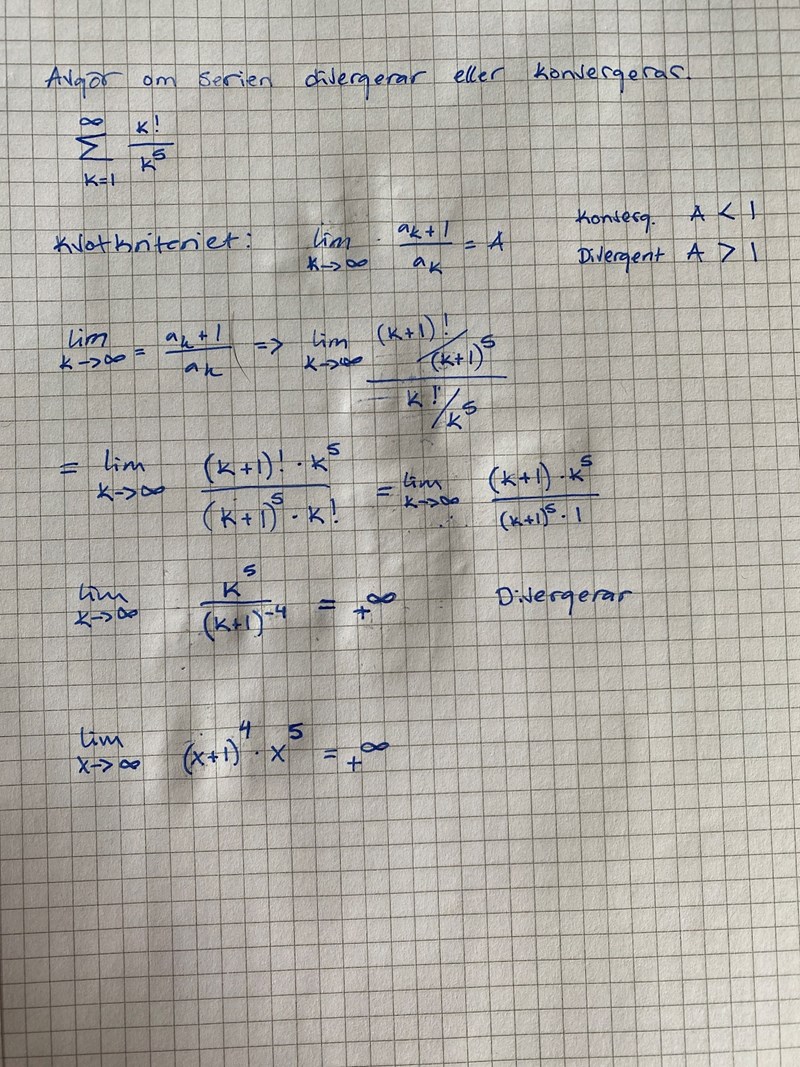 Avgör om serien divergerar eller konvergeras.
∞ Σ k=1 k! / k^5
Kvotkriteriet: lim k→∞ · a_k+1 / a_k = A Konverg. A < 1
Divergent A > 1
lim k→∞ = a_k+1 / a_k => lim k→∞ ((k+1)! / (k+1)^5) / (k! / k^5)
= lim k→∞ ((k+1)! · k^5) / ((k+1)^5 · k!) = lim k→∞ ((k+1) · k^5) / ((k+1)^5 · 1)
lim k→∞ k^5 / (k+1)^-4 = +∞ Divergerar
lim x→∞ (x+1)^4 · x^5 = +∞